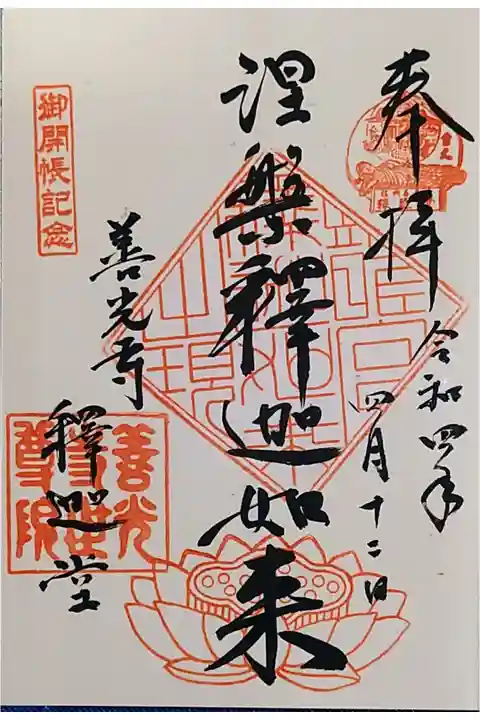 奉拝
令和四年
四月十二日
涅槃釋迦如来
御開帳記念
善光寺
釋迦堂
善光寺
世尊院